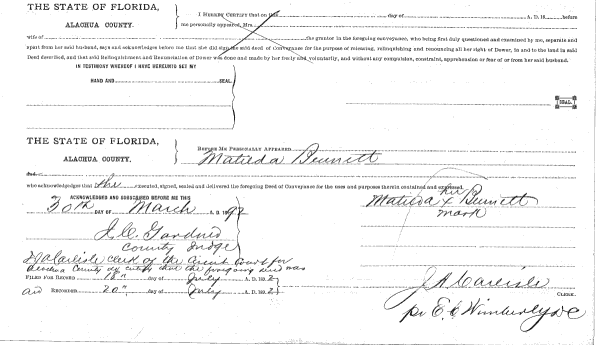 THE STATE OF FLORIDA,
ALACHUA COUNTY.
I HEREBY CERTIFY that on this day of A. D. 18 before
me personally appeared, Mrs.
wife of the grantor in the foregoing conveyance, who being first duly questioned and examined by me, separate and
apart from her said husband, says and acknowledges before me that she did sign the said deed of Conveyance for the purpose of releasing, relinquishing and renouncing all her right of Dower, in and to the land in said
Deed described, and that said Relinquishment and Renunciation of Dower was done and made by her freely and voluntarily, and without any compulsion, constraint, apprehension or fear of or from her said husband.
IN TESTIMONY WHEREOF I HAVE HEREUNTO SET MY
HAND AND SEAL
SEAL.
THE STATE OF FLORIDA,
ALACHUA COUNTY.
BEFORE ME PERSONALLY APPEARED
Matilda Bennett
and
who acknowledges that she executed, signed, sealed and delivered the foregoing Deed of Conveyance for the uses and purposes therein contained and expressed.
ACKNOWLEDGED AND SUBSCRIBED BEFORE ME THIS
30th DAY OF March A. D. 1892
her
Matilda x Bennett
mark
County Judge
J A Carlisle clerk of the Circuit Court for
Alachua County do certify that the foregoing deed was
FILED FOR RECORD 18" day of July A. D. 1892
and RECORDED 20" day of July A. D. 1892
J A Carlisle
CLERK.
pr E. C Wimberly DC